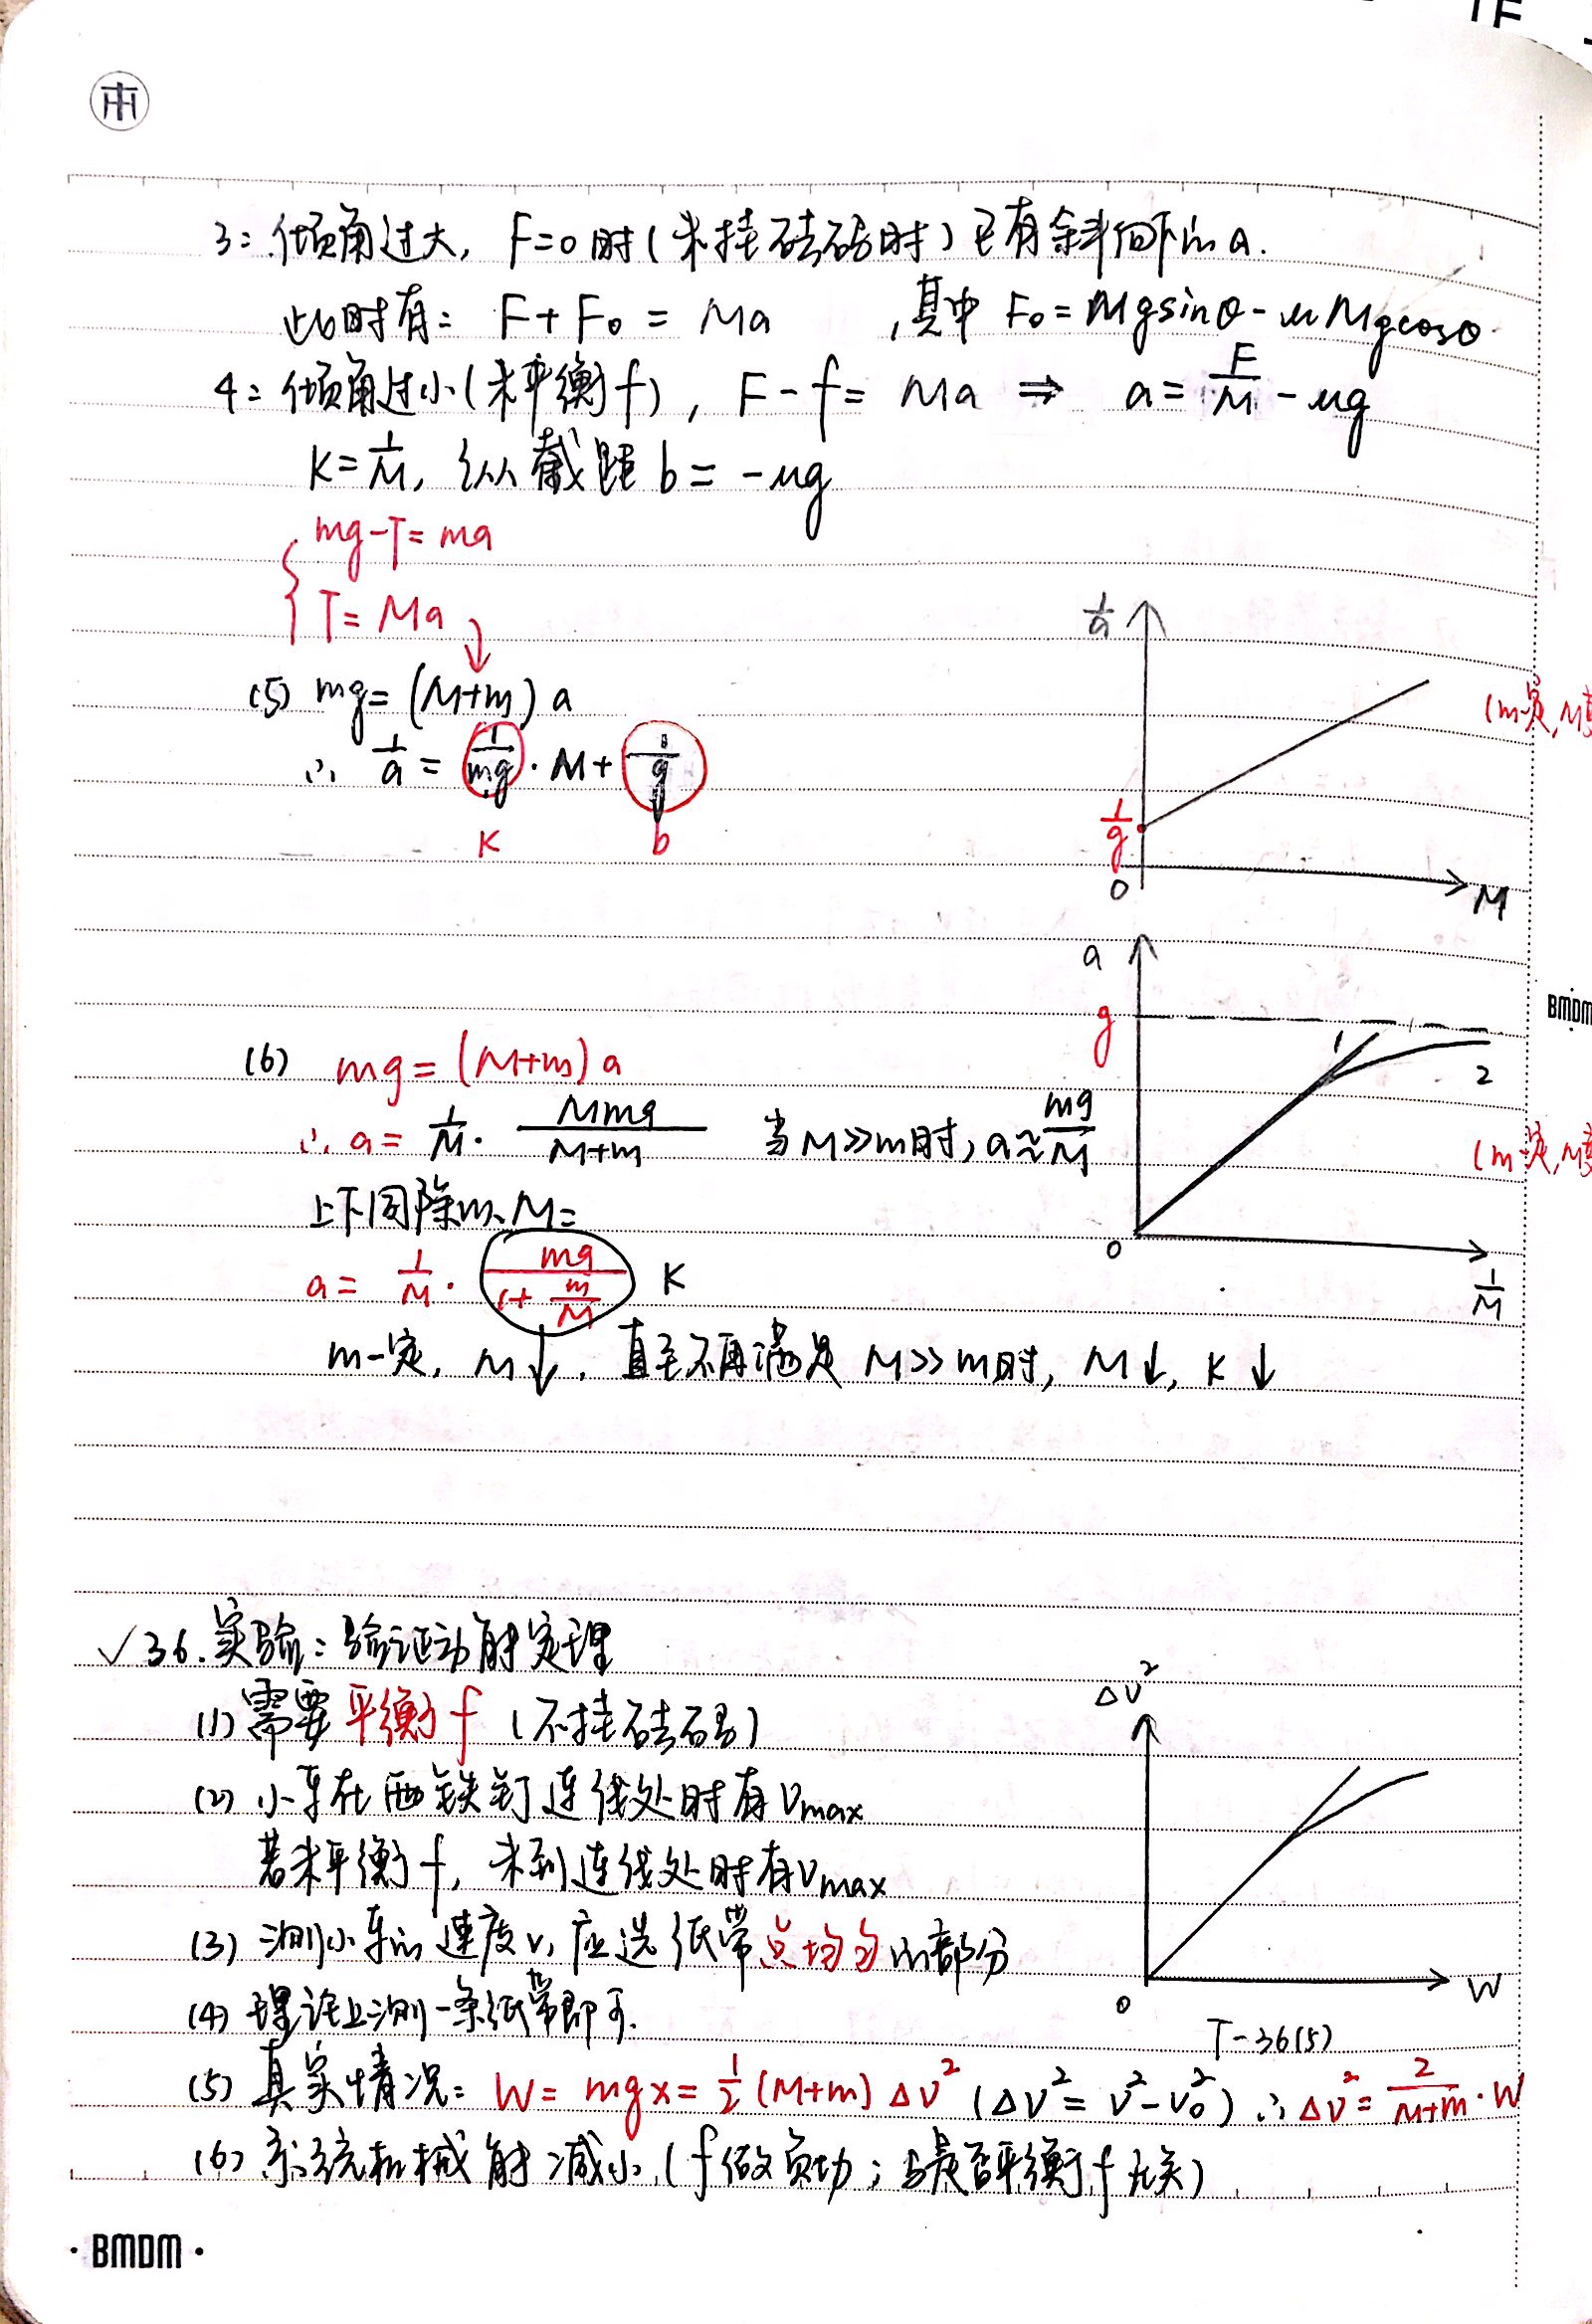 3: 倾角过大, F=0时(未挂砝码时)已有斜向下的a.
此时有: F+F₀ = Ma ,其中 F₀=Mgsinθ-μMgcosθ.
4: 倾角过小(未平衡f), F-f= Ma ⇒ a= F/M -μg
K=1/M, 纵截距 b= -μg
mg-T= ma
T= Ma
(5) mg= (M+m) a
∴ 1/a = 1/mg · M + 1/g
K b
1/a
1/g
0
M
(m一定,M
a
g
1
2
(m一定,M
0
1/M
(6) mg= (M+m) a
∴ a= 1/M · Mmg/M+m 当M≫m时, a≈mg/M
上下同除以M:
a= 1/M · mg/(1+ m/M) K
m一定, M↓, 直至不再满足 M≫m时, M↓, K↓
✓36. 实验: 验证动能定理
(1) 需要平衡f (不挂砝码)
(2) 小车在两铁钉连线处时有Vmax
若未平衡f, 未到连线处时有Vmax
(3) 测小车的速度v, 应选纸带点均匀的部分
(4) 理论上测一条纸带即可.
ΔV²
0
W
T-36(5)
(5) 真实情况: W= mgx= 1/2 (M+m) ΔV² (ΔV²= V²-V₀²) ∴ ΔV²= 2/M+m · W
(6) 系统机械能减小 (f做负功; 与是否平衡f无关)
· BMDM ·
BMDM